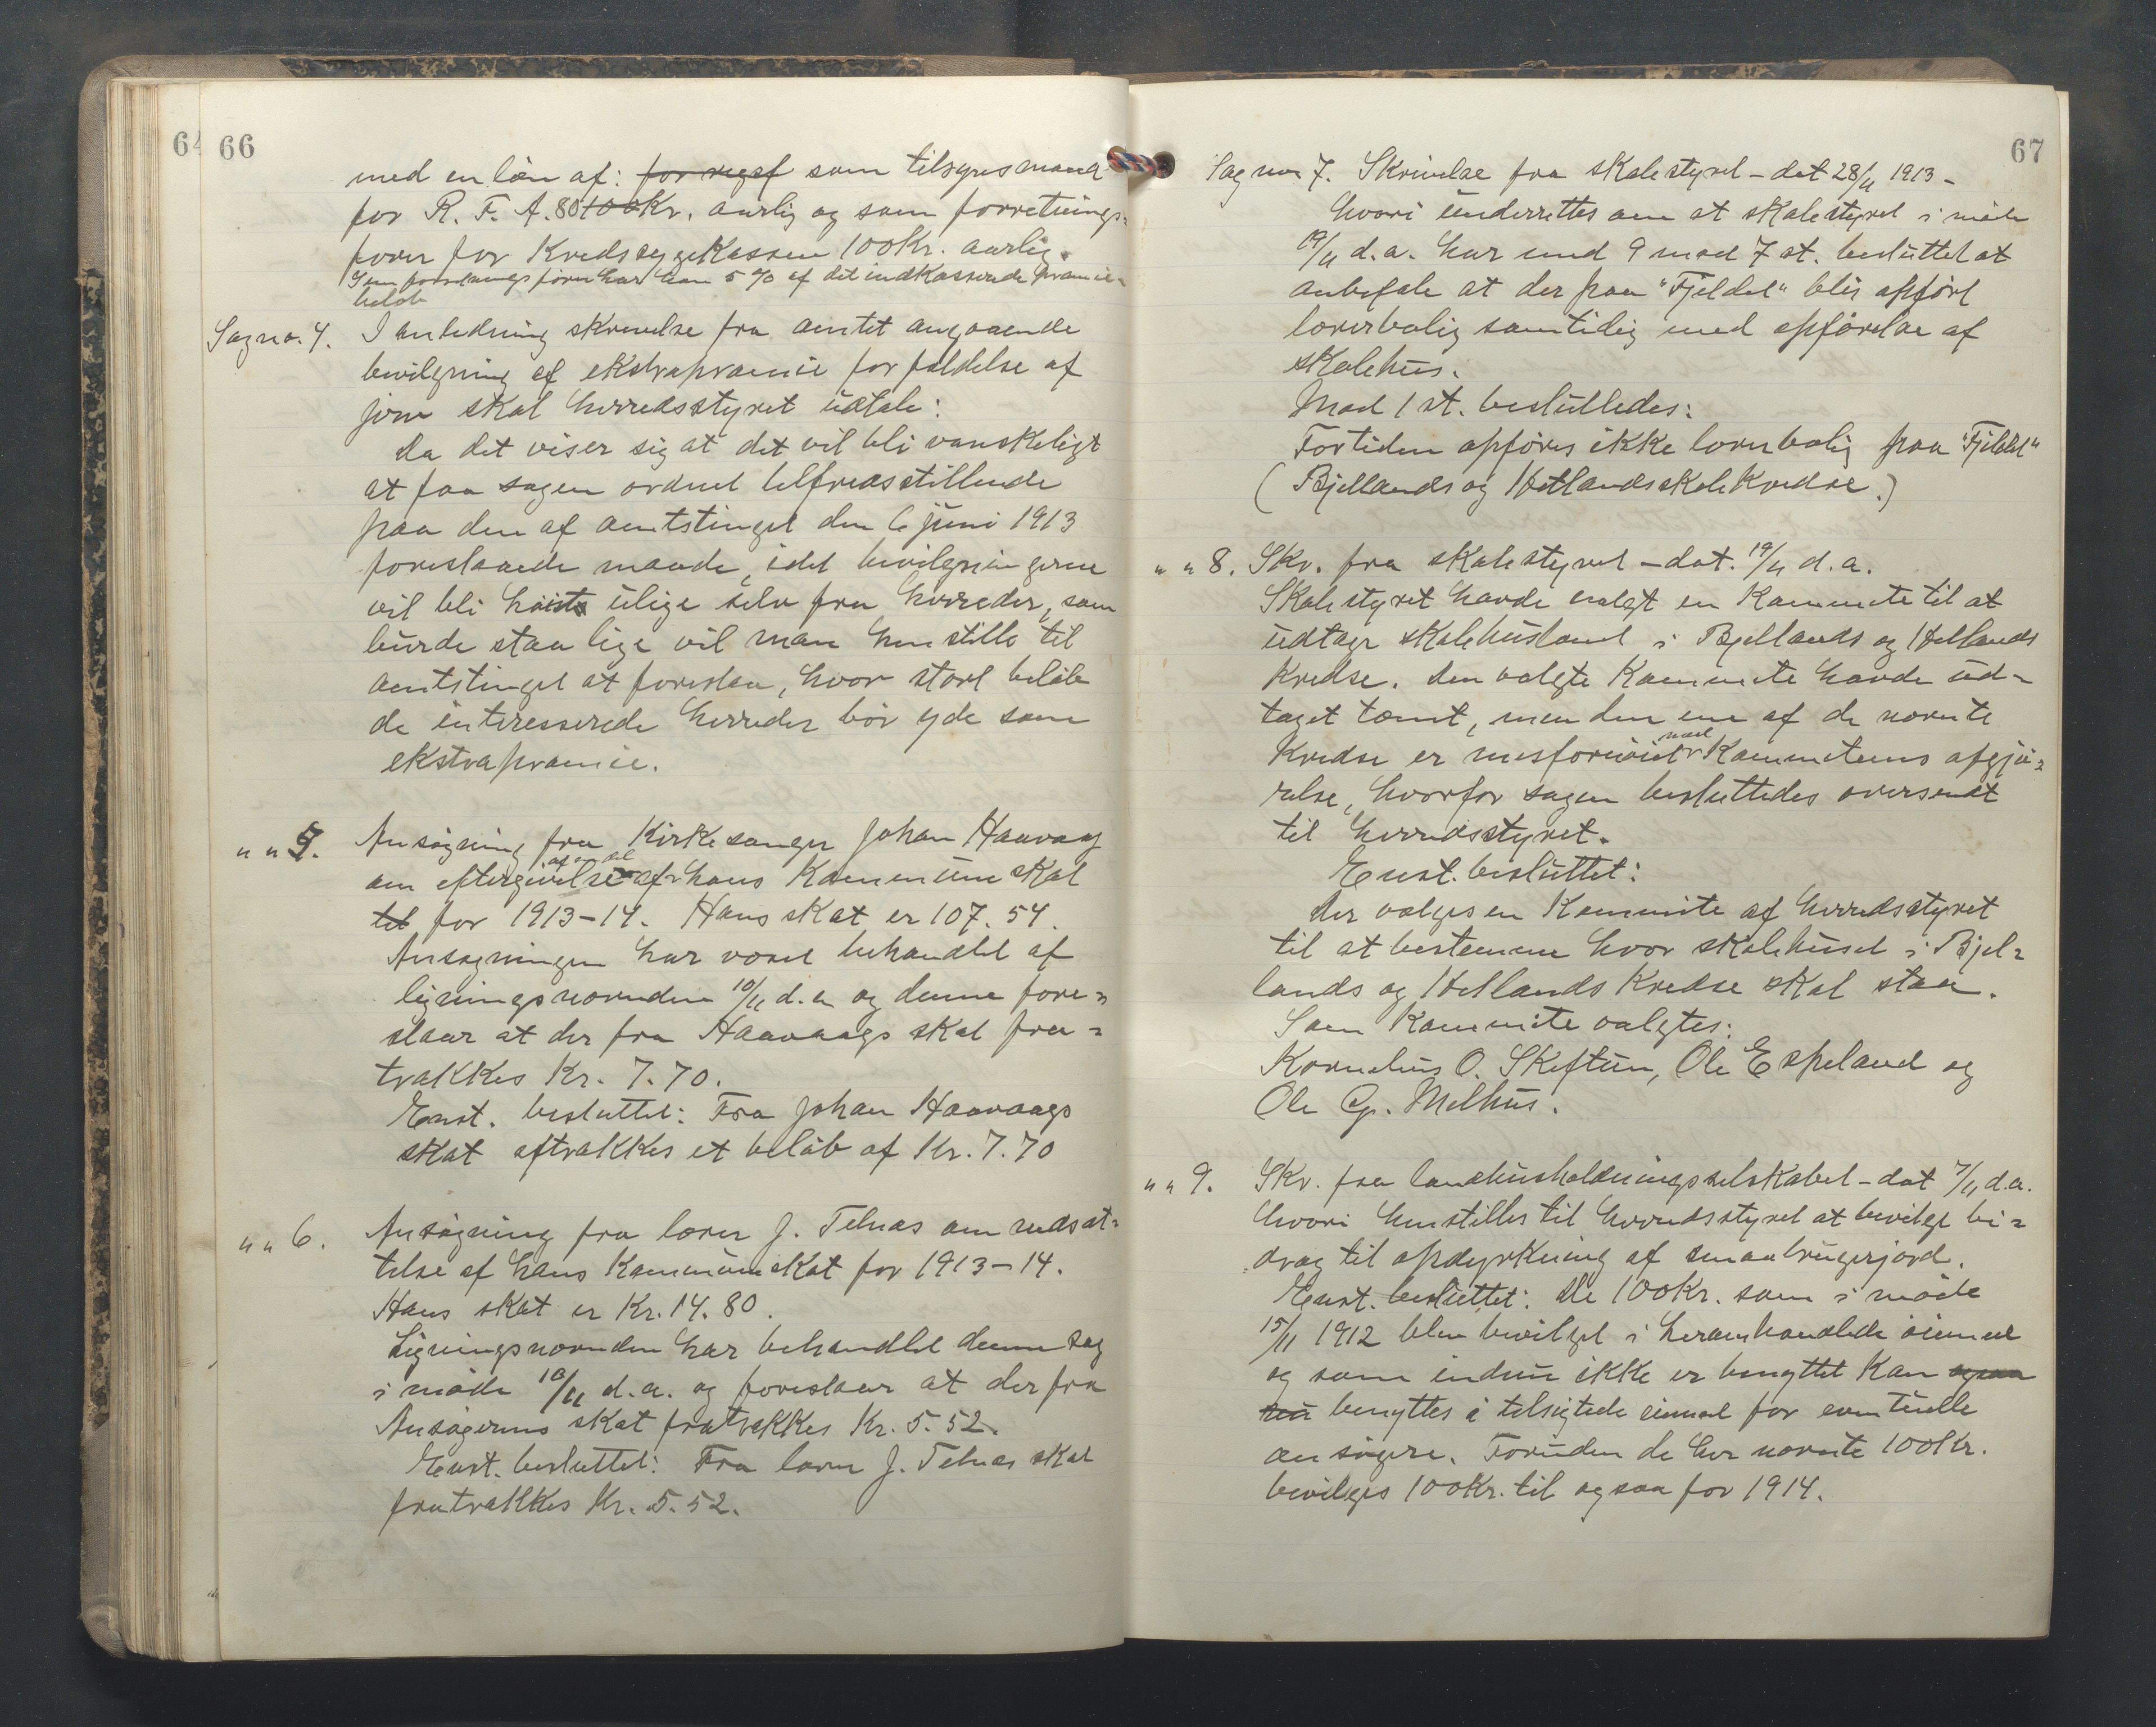 64 66
med en løn af: for sygef som tilsynsmand
for R. F. A. 80 100 Kr. aarlig og som forretnings-
fører for Kredssygekassen 100 Kr. aarlig.
Som forretningsfører har han 5 % af det indkasserede præmie-
beløb
Sag no. 4. I anledning skrivelse fra amtet angaaende
bevilgning af ekstrapræmie for fældelse af
jørn skal herredsstyret udtale:
Da det viser sig at det vil bli vanskeligt
at faa sagen ordnet tilfredsstillende
paa den af amtstinget den 6 juni 1913
foreslaaede maade, idet bevilgningerne
vil bli høist ulige selv fra herreder, som
burde staa lige vil man henstille til
amtstinget at foreslaa, hvor stort beløb
de interesserede herreder bør yde som
ekstrapræmie.
" " 5. Ansøgning fra Kirkesanger Johan Haavaag
om eftergivelse af en del af hans Kommuneskat
til for 1913-14. Hans skat er 107.54.
Ansøgningen har været behandlet af
ligningsnævnden 10/11 d.a og denne fore-
slaar at der fra Haavaags skat fra-
trækkes Kr. 7.70.
Enst. besluttet: Fra Johan Haavaags
skat aftrækkes et beløb af Kr. 7.70
" " 6. Ansøgning fra lærer J. Telnæs om nedsæt-
telse af hans Kommuneskat for 1913-14.
Hans skat er Kr. 14.80.
Ligningsnævnden har behandlet denne sag
i møde 10/11 d.a. og foreslaar at der fra
Ansøgerens skat fratrækkes Kr. 5.52.
Enst. besluttet: Fra lærer J. Telnæs skat
fratrækkes Kr. 5.52.
67
Sag no 7. Skrivelse fra skolestyret - dat 28/11 1913 -
hvori underrettes om at skolestyret i møde
19/11 d.a. har med 9 mod 7 st. besluttet at
anbefale at der paa "Fjeldet" blir opført
lærerbolig samtidig med opførelse af
skolehus.
Mod 1 st. besluttedes:
For tiden opføres ikke lærerbolig paa "Fjeldet"
(Bjellands og Hetlands skolekredse.)
" " 8. Skr. fra skolestyret - dat. 19/11 d.a.
Skolestyret havde valgt en Kommite til at
udtage skolehustomt i Bjellands og Hetlands
Kredse. Den valgte Kommite havde ud-
taget tomt, men den ene af de nævnte
Kredse er misfornøiet med Kommiteens afgjø-
relse, hvorfor sagen besluttedes oversendt
til herredsstyret.
Enst. besluttet:
Der vælges en Kommite af herredsstyret
til at bestemme hvor skolehuset i Bjel-
lands og Hetlands Kredse skal staa.
Som Kommite valgtes:
Kornelius O. Skeftun, Ole Espeland og
Ole G. Melhus.
" " 9. Skr. fra landhusholdningsselskabet - dat 7/11 d.a.
hvori henstilles til herredsstyret at bevilge bi-
drag til opdyrkning af smaabrugerjord.
Enst. besluttet: De 100 Kr. som i møde
15/11 1912 blev bevilget i heromhandlede øiemed
og som endnu ikke er benyttet Kan ogsaa
nu benyttes i tilsigtede øiemed for eventuelle
ansøgere. Foruden de her nævnte 100 Kr.
bevilges 100 Kr. til ogsaa for 1914.